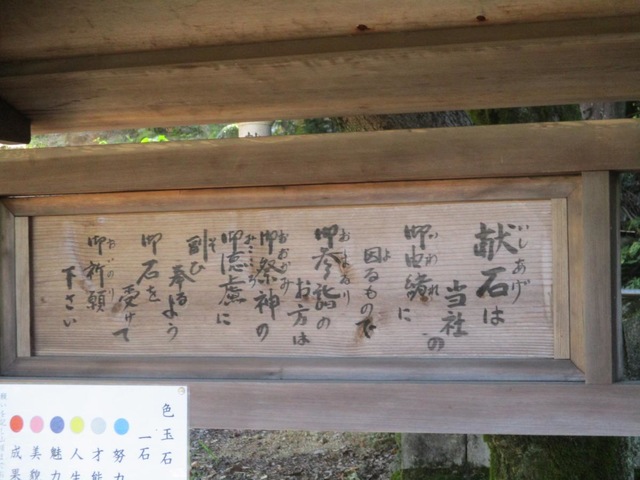 献石は
いしあげ
当社の
御由緒に
いわれ
因るもので
よ
御参詣の
おまゐり
お方は
御祭神の
おおがみ
みこころ
慮に
副ひ
そ
奉るよう
御石を
受けて
御祈願
おいのり
下さい
色玉石
一石
努力
才能
人生
魅力
美貌
成果